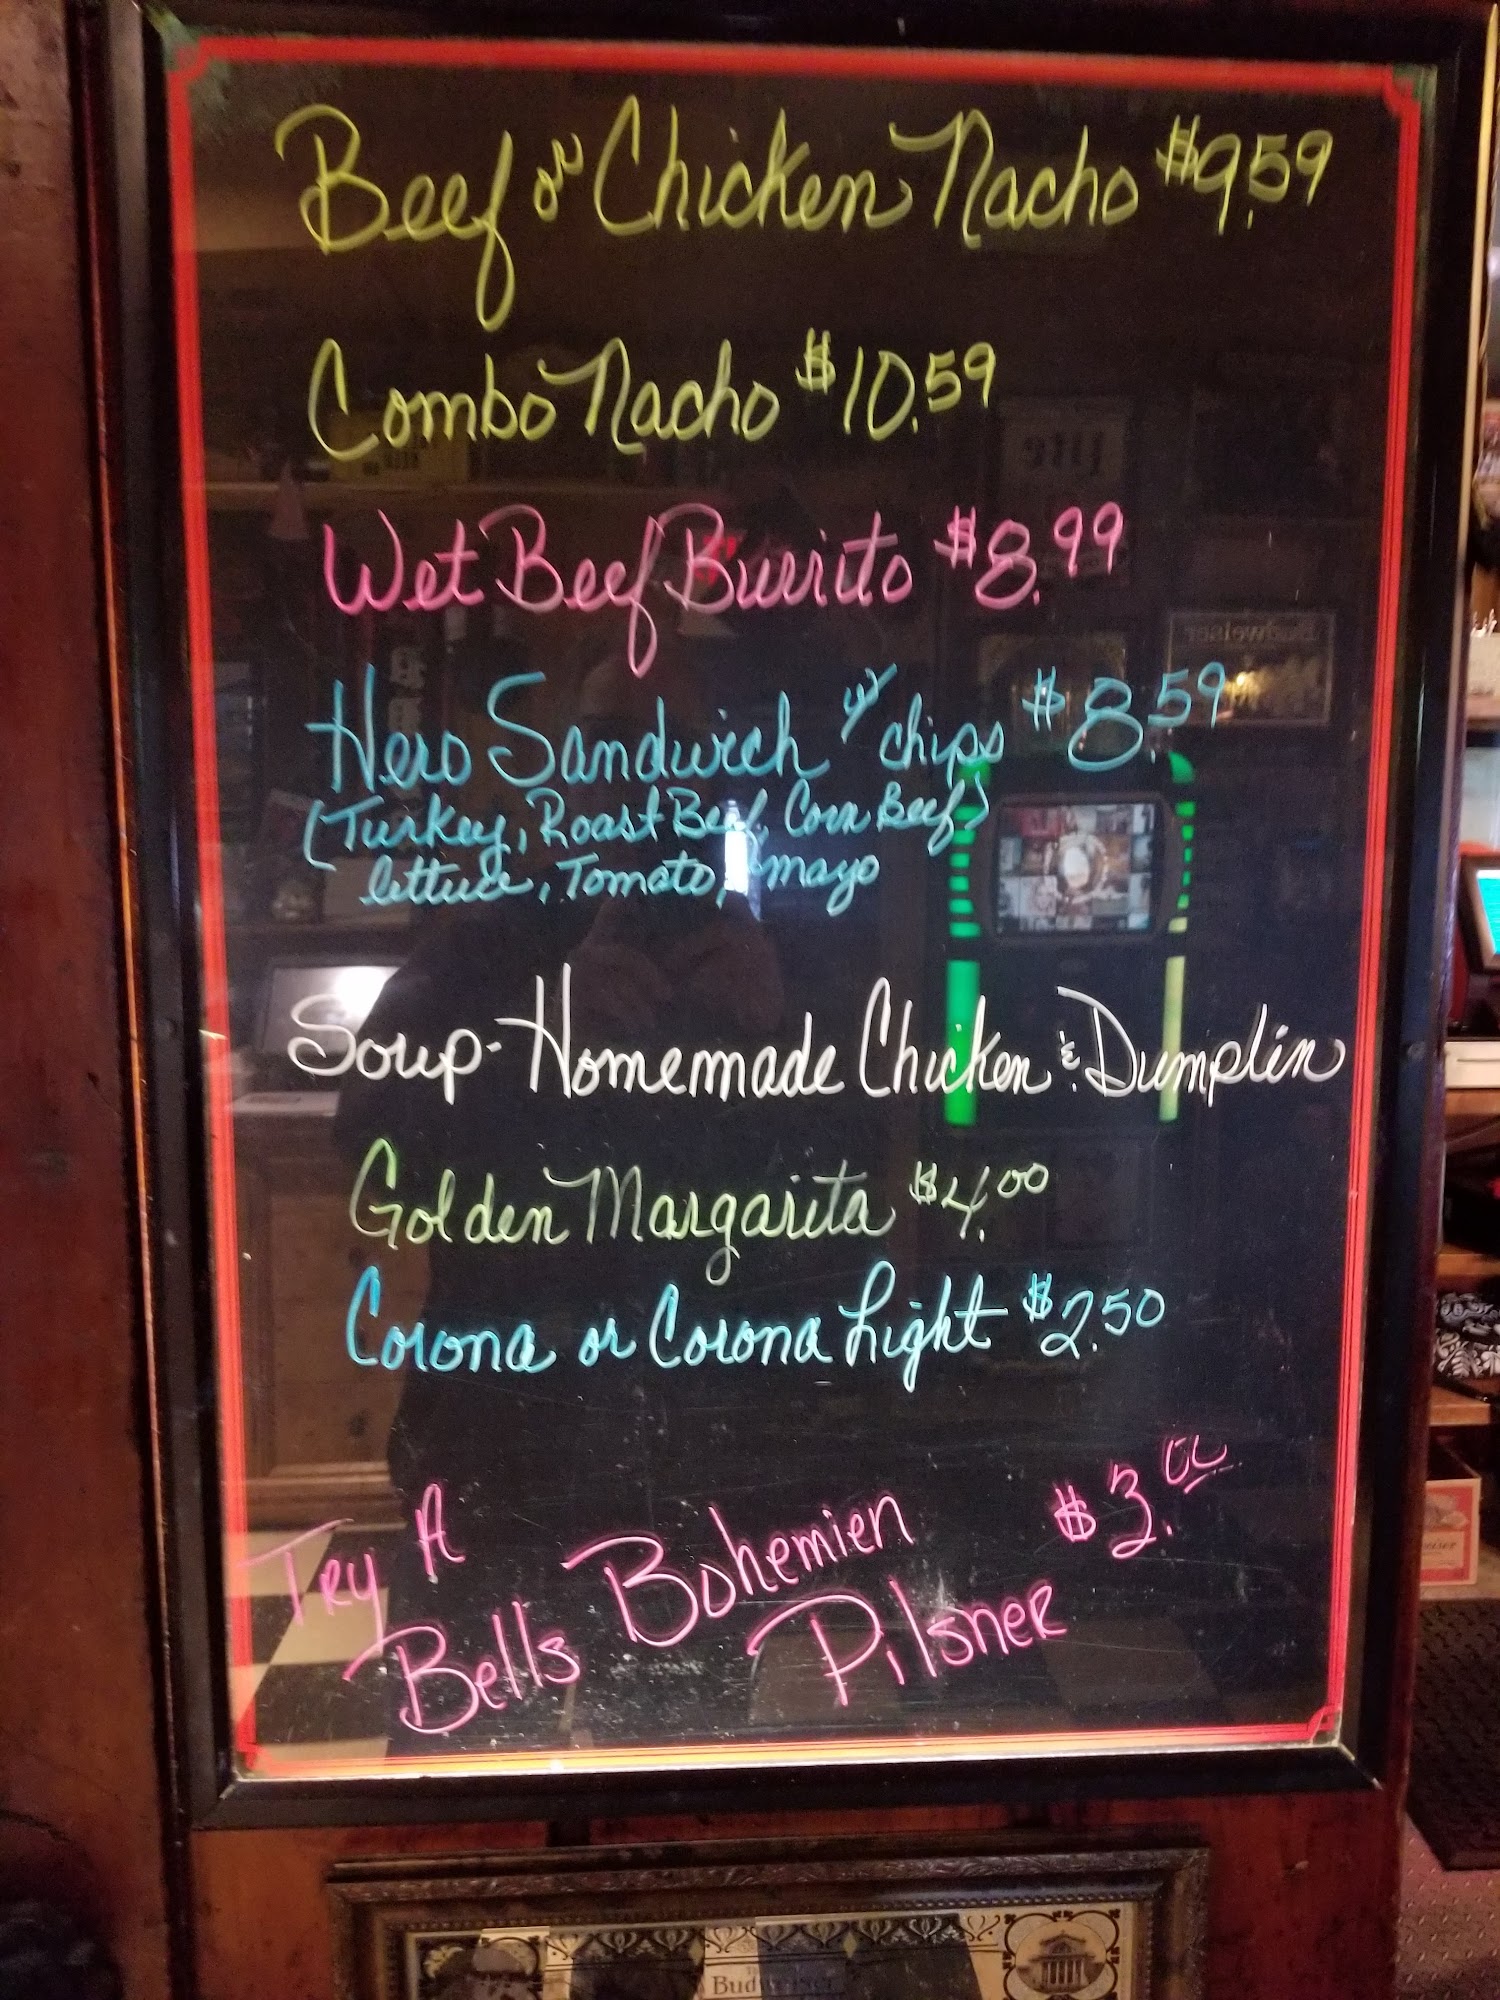 Beef or Chicken Nacho $9.59
Combo Nacho $10.59
Wet Beef Burrito $8.99
Hero Sandwich w/ chips $8.59
(Turkey, Roast Beef, Corn Beef)
lettuce, Tomato, mayo
Soup - Homemade Chicken & Dumplin
Golden Margarita $4.00
Corona or Corona Light $2.50
Try A
Bells Bohemien $3.00
Pilsner
Budweiser